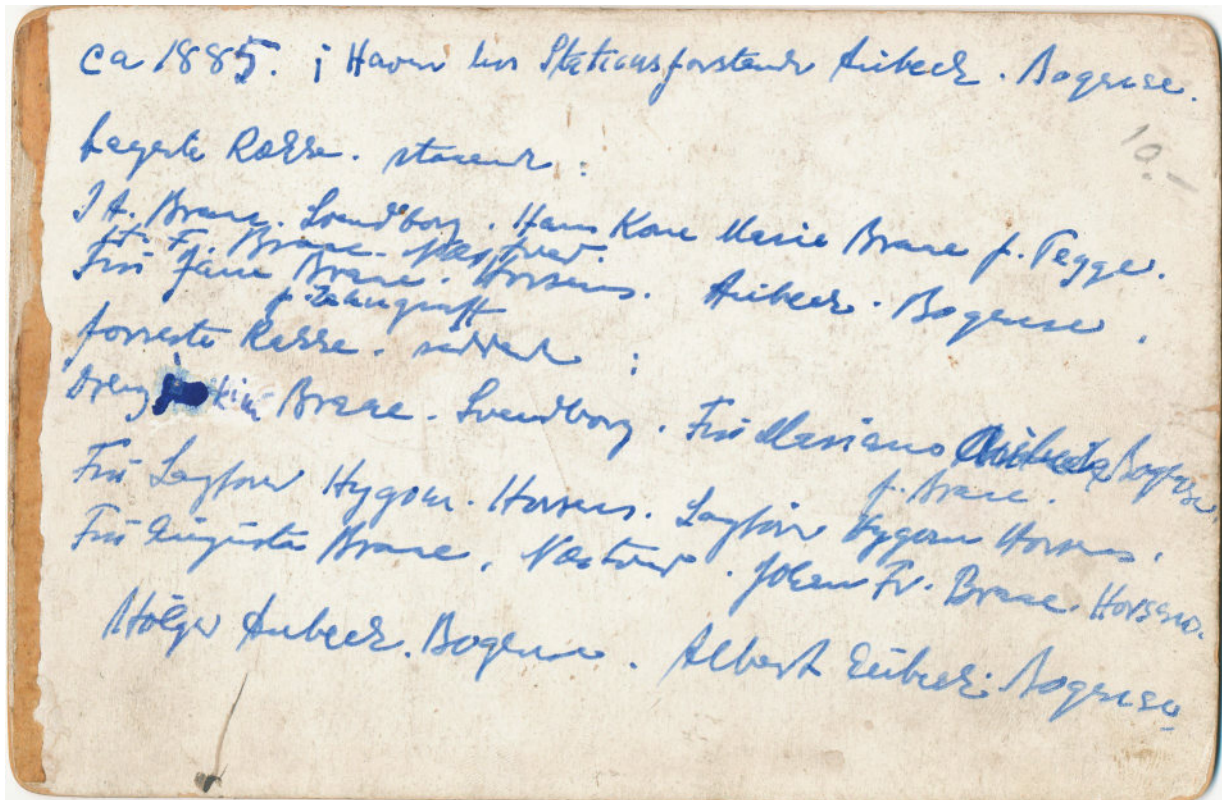 ca 1885. i Haven hos Stationsforstander Aübeck. Bogense.
10.-
bageste Række. staaende :
J A. Braae. Svendborg. Hans Kone Marie Braae f. Tegger.
Fr. Braae. Næstved.
Frü Jane Braae. Horsens. Aübeck. Bogense.
f.
forreste Række. siddende :
Dreng Braae. Svendborg. Frü Mariane Bogense
f. Braae.
Frü Hygom. Horsens. Hygom Horsens.
Frü Aügüsta Braae, Næstved. Johan Fr. Braae. Horsens.
Holger Aübeck. Bogense. Albert Aübeck. Bogense